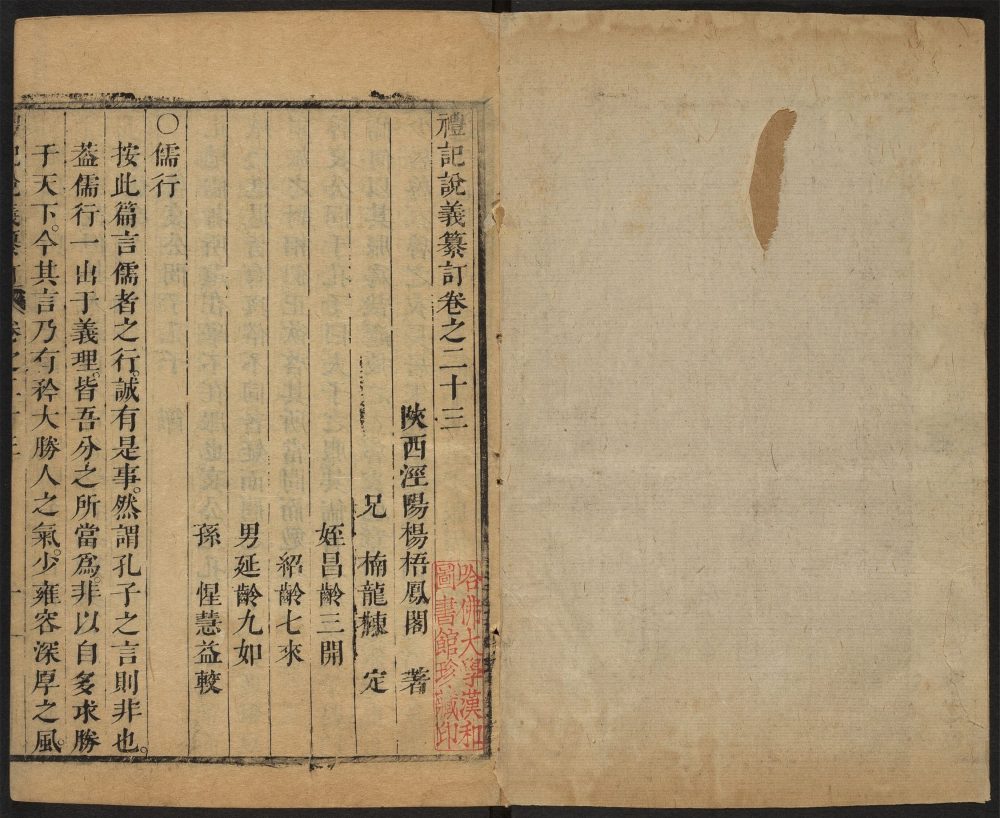 禮記說義纂訂卷之二十三
陝西涇陽楊梧鳳閣 著
兄 楠龍棟 定
姪昌齡三開
紹齡七來
男延齡九如
孫 惺慧益較
○儒行
按此篇言儒者之行。誠有是事。然謂孔子之言則非也。
葢儒行一出于義理。皆吾分之所當為。非以自多求勝
于天下。今其言乃有矜大勝人之氣。少雍容深厚之風。
禮記說義纂訂 卷之二十三 一
哈佛大學漢和
圖書館珍藏印